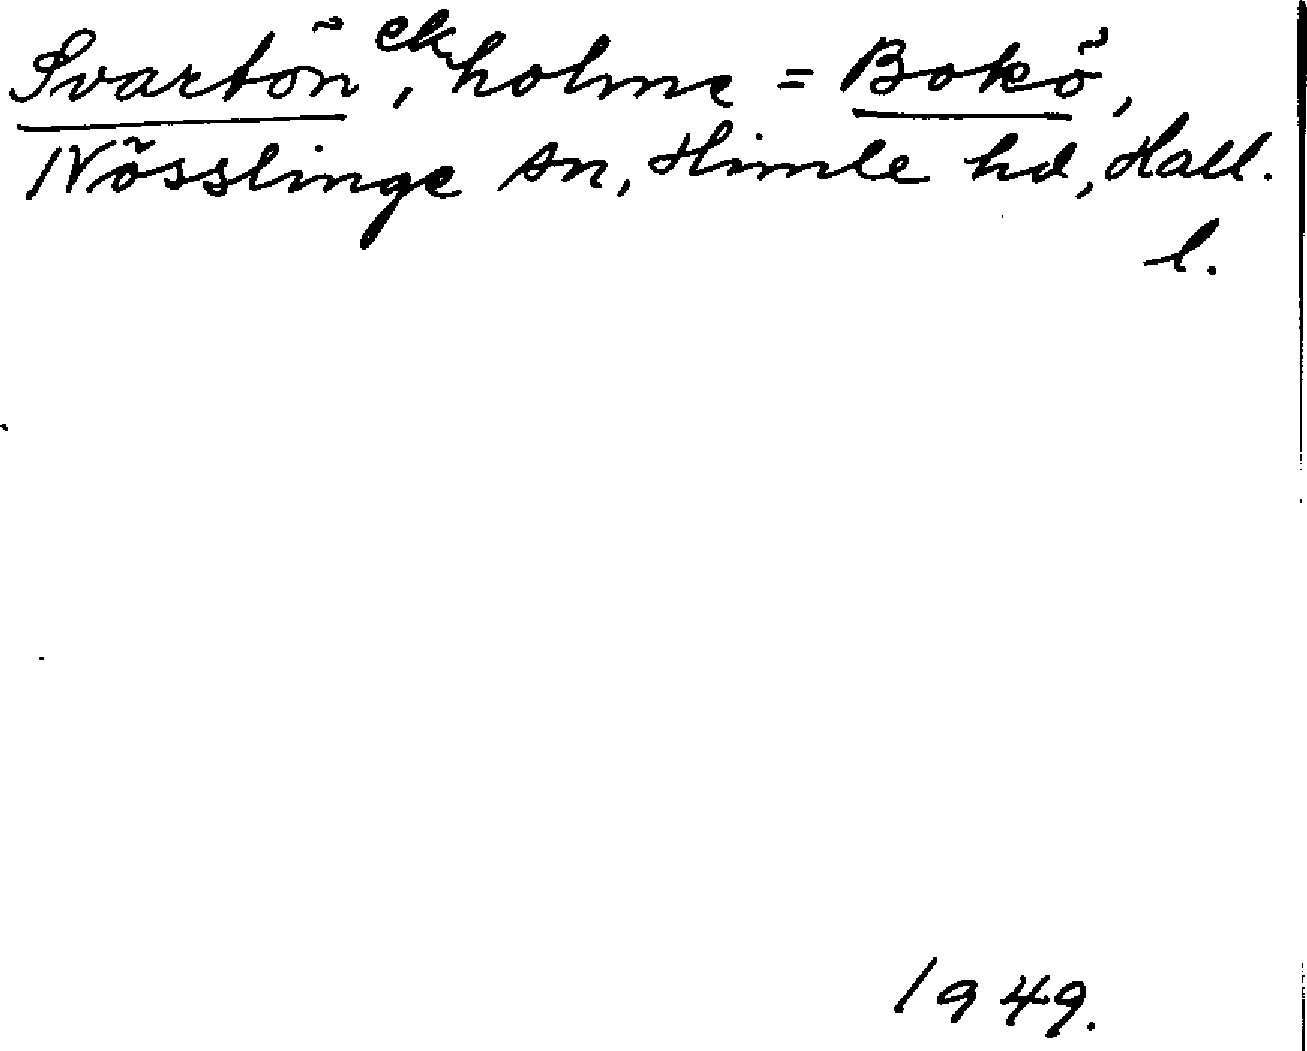 Svartön, ekholme = Bokö,
Nösslinge sn, Himle hd, Hall.
l.
1949.